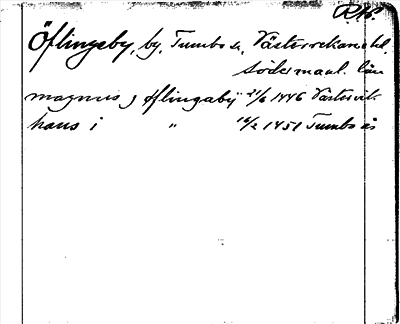 Öflingsby, by, Tumbo sn, Västerrekarne hd.
Södermanl. län
magnus j öflingaby 21/6 1446 Västervik
hans i " 16/2 1451 Tumbo